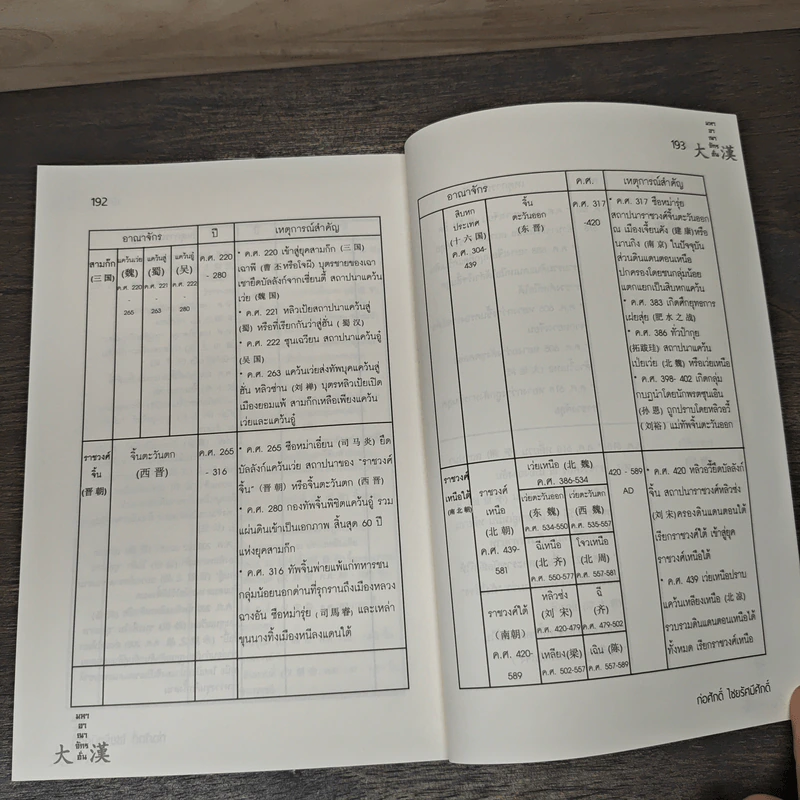 192
อาณาจักร
ปี
เหตุการณ์สำคัญ
สามก๊ก
(三国)
แคว้นเว่ย
(魏)
ค.ศ. 220
-
265
แคว้นสู่
(蜀)
ค.ศ. 221
-
263
แคว้นอู๋
(吴)
ค.ศ. 222
-
280
ค.ศ. 220
- 280
• ค.ศ. 220 เข้าสู่ยุคสามก๊ก (三国)
เฉาพี (曹丕หรือโจผี) บุตรชายของเฉา
เชายึดบัลลังก์จากเซี่ยนตี้ สถาปนาแคว้น
เว่ย (魏国)
• ค.ศ. 221 หลิวเป้ยสถาปนาแคว้นสู่
(蜀) หรือที่เรียกกันว่าสู่ฮั่น (蜀汉)
• ค.ศ. 222 ซุนเฉวียน สถาปนาแคว้นอู๋
(吴国)
• ค.ศ. 263 แคว้นเว่ยส่งทัพบุคแคว้นสู่
ฮั่น หลิวซ่าน (刘禅) บุตรหลิวเป้ยเปิด
เมืองยอมแพ้ สามก๊กเหลือเพียงแคว้น
เว่ยและแคว้นอู๋
ราชวงศ์
จิ้น
(晋朝)
จิ้นตะวันตก
(西晋)
ค.ศ. 265
- 316
• ค.ศ. 265 ซือหม่าเอี๋ยน (司马炎) ยึด
บัลลังก์แคว้นเว่ย สถาปนาของ "ราชวงศ์
จิ้น" (晋朝) หรือจิ้นตะวันตก (西晋)
• ค.ศ. 280 กองทัพจิ้นพิชิตแคว้นอู๋ รวม
แผ่นดินเข้าเป็นเอกภาพ สิ้นสุด 60 ปี
แห่งยุคสามก๊ก
• ค.ศ. 316 ทัพจิ้นพ่ายแพ้แก่ทหารชน
กลุ่มน้อยนอกด่านที่รุกรานถึงเมืองหลวง
ฉางอัน ซือหม่ารุ่ย (司馬睿) และเหล่า
ขุนนางทิ้งเมืองหนีลงแดนใต้
มหา
อา
ณา
จักร
ฮั่น
大漢
193
มหา
อา
ณา
จักร
ฮั่น
大漢
อาณาจักร
ค.ศ.
เหตุการณ์สำคัญ
สิบหก
ประเทศ
(十六国)
ค.ศ. 304-
439
จิ้น
ตะวันออก
(东晋)
ค.ศ. 317
-420
• ค.ศ. 317 ซือหม่ารุ่ย
สถาปนาราชวงศ์จิ้นตะวันออก
ณ เมืองเจี้ยนคัง (建康)หรือ
นานกิง (南京) ในปัจจุบัน
ส่วนดินแดนตอนเหนือ
ปกครองโดยชนกลุ่มน้อย
แตกแยกเป็นสิบหกแคว้น
• ค.ศ. 383 เกิดศึกยุทธการ
เฝยสุ่ย (肥水之战)
• ค.ศ. 386 ทั่วป๋ากุย
(拓跋珪) สถาปนาแคว้น
เป่ยเว่ย (北魏) หรือเว่ยเหนือ
• ค.ศ. 398- 402 เกิดกลุ่ม
กบฏนำโดยนักพรตซุนเอิน
(孙恩) ถูกปราบโดยหลิวอวี้
(刘裕) แม่ทัพจิ้นตะวันออก
ราชวงศ์
เหนือใต้
(南北朝)
ราชวงศ์
เหนือ
(北朝)
ค.ศ. 439-
581
เว่ยเหนือ (北魏)
ค.ศ. 386-534
เว่ยตะวันออก
(东魏)
ค.ศ. 534-550
เว่ยตะวันตก
(西魏)
ค.ศ. 535-557
ฉีเหนือ
(北齐)
ค.ศ. 550-577
โจวเหนือ
(北周)
ค.ศ. 557-581
ราชวงศ์ใต้
(南朝)
ค.ศ. 420-
589
หลิวซ่ง
(刘宋)
ค.ศ. 420-479
ฉี
(齐)
ค.ศ. 479-502
เหลียง(梁)
ค.ศ. 502-557
เฉิน (陈)
ค.ศ. 557-589
420 - 589
AD
• ค.ศ. 420 หลิวอวี้ยึดบัลลังก์
จิ้น สถาปนาราชวงศ์หลิวซ่ง
(刘宋)ครองดินแดนตอนใต้
เรียกราชวงศ์ใต้ เข้าสู่ยุค
ราชวงศ์เหนือใต้
• ค.ศ. 439 เว่ยเหนือปราบ
แคว้นเหลียงเหนือ (北凉)
รวบรวมดินแดนตอนเหนือได้
ทั้งหมด เรียกราชวงศ์เหนือ
ก่อศักดิ์ ไชยรัศมีศักดิ์